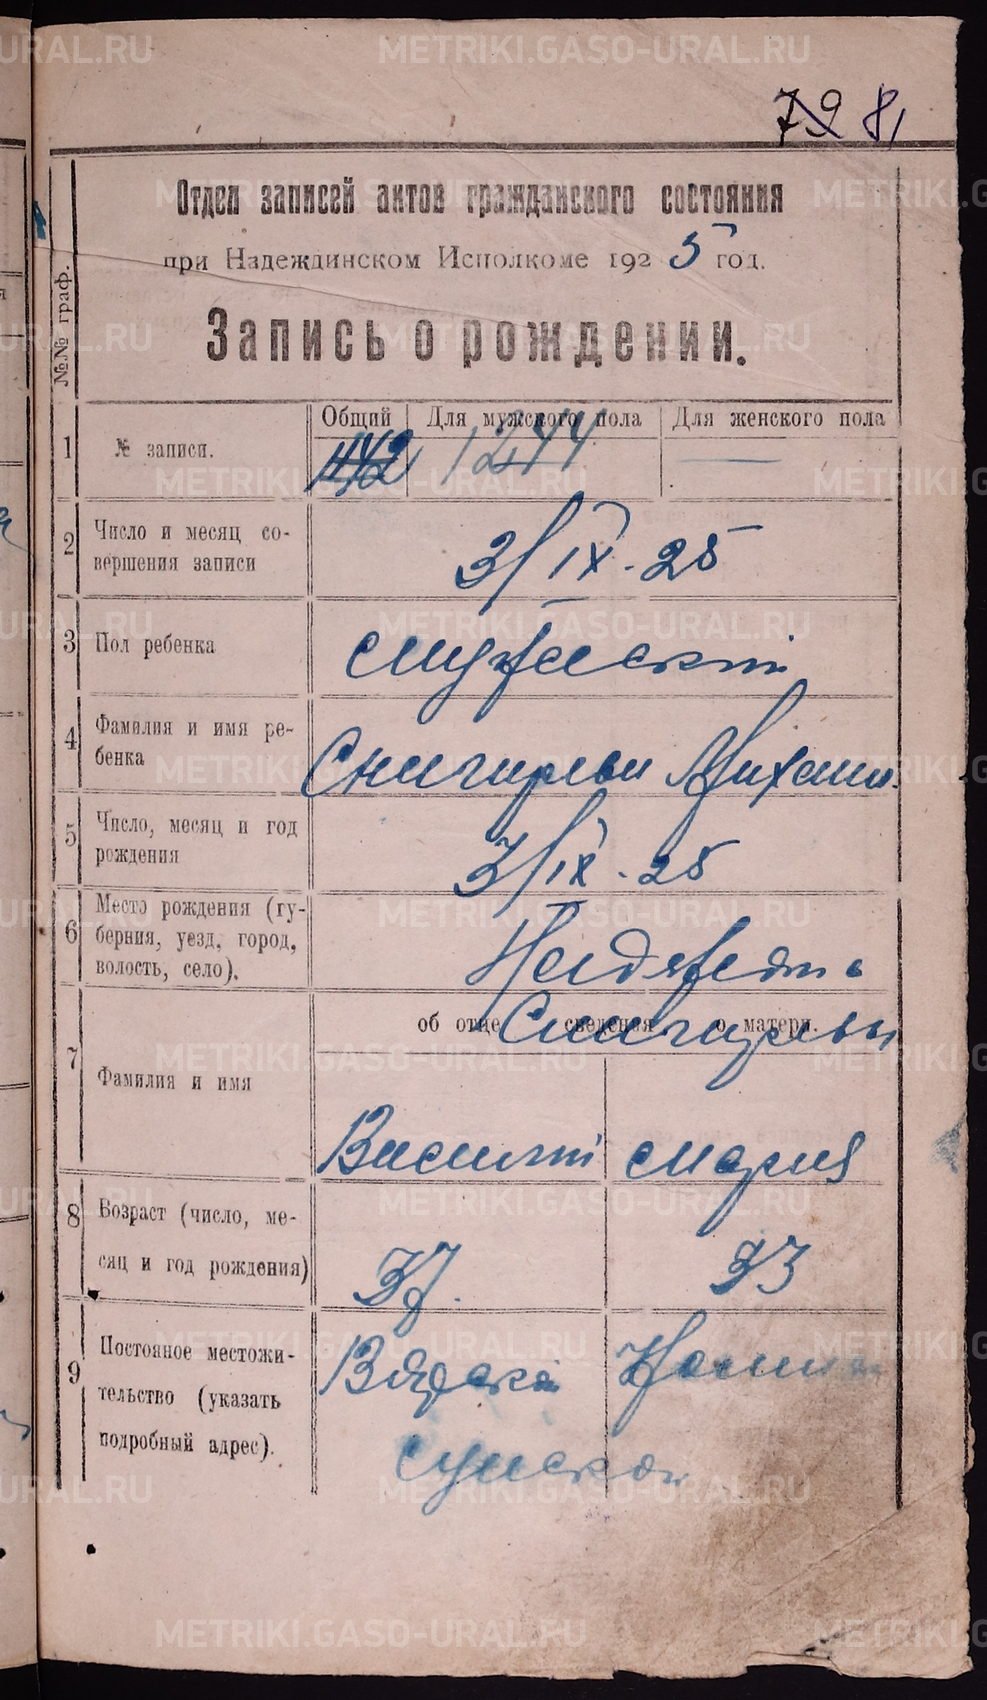 79 81
Отдел записей актов гражданского состояния
при Надеждинском Исполкоме 1925 год.
Запись о рождении.
№№ граф.
Общий Для мужского пола Для женского пола
1 № записи. 1244 —
2 Число и месяц со-
вершения записи 3/IX-25
3 Пол ребенка мужеский
4 Фамилия и имя ре-
бенка Снигирев Михаил.
5 Число, месяц и год
рождения 3/IX-25
6 Место рождения (гу-
берния, уезд, город,
волость, село).
7 об отце сведения о матери.
Снигиревы
Фамилия и имя
Василий Мария
8 Возраст (число, ме-
сяц и год рождения) 37. 33
9 Постояное местожи-
тельство (указать
подробный адрес).
METRIKI.GASO-URAL.RU